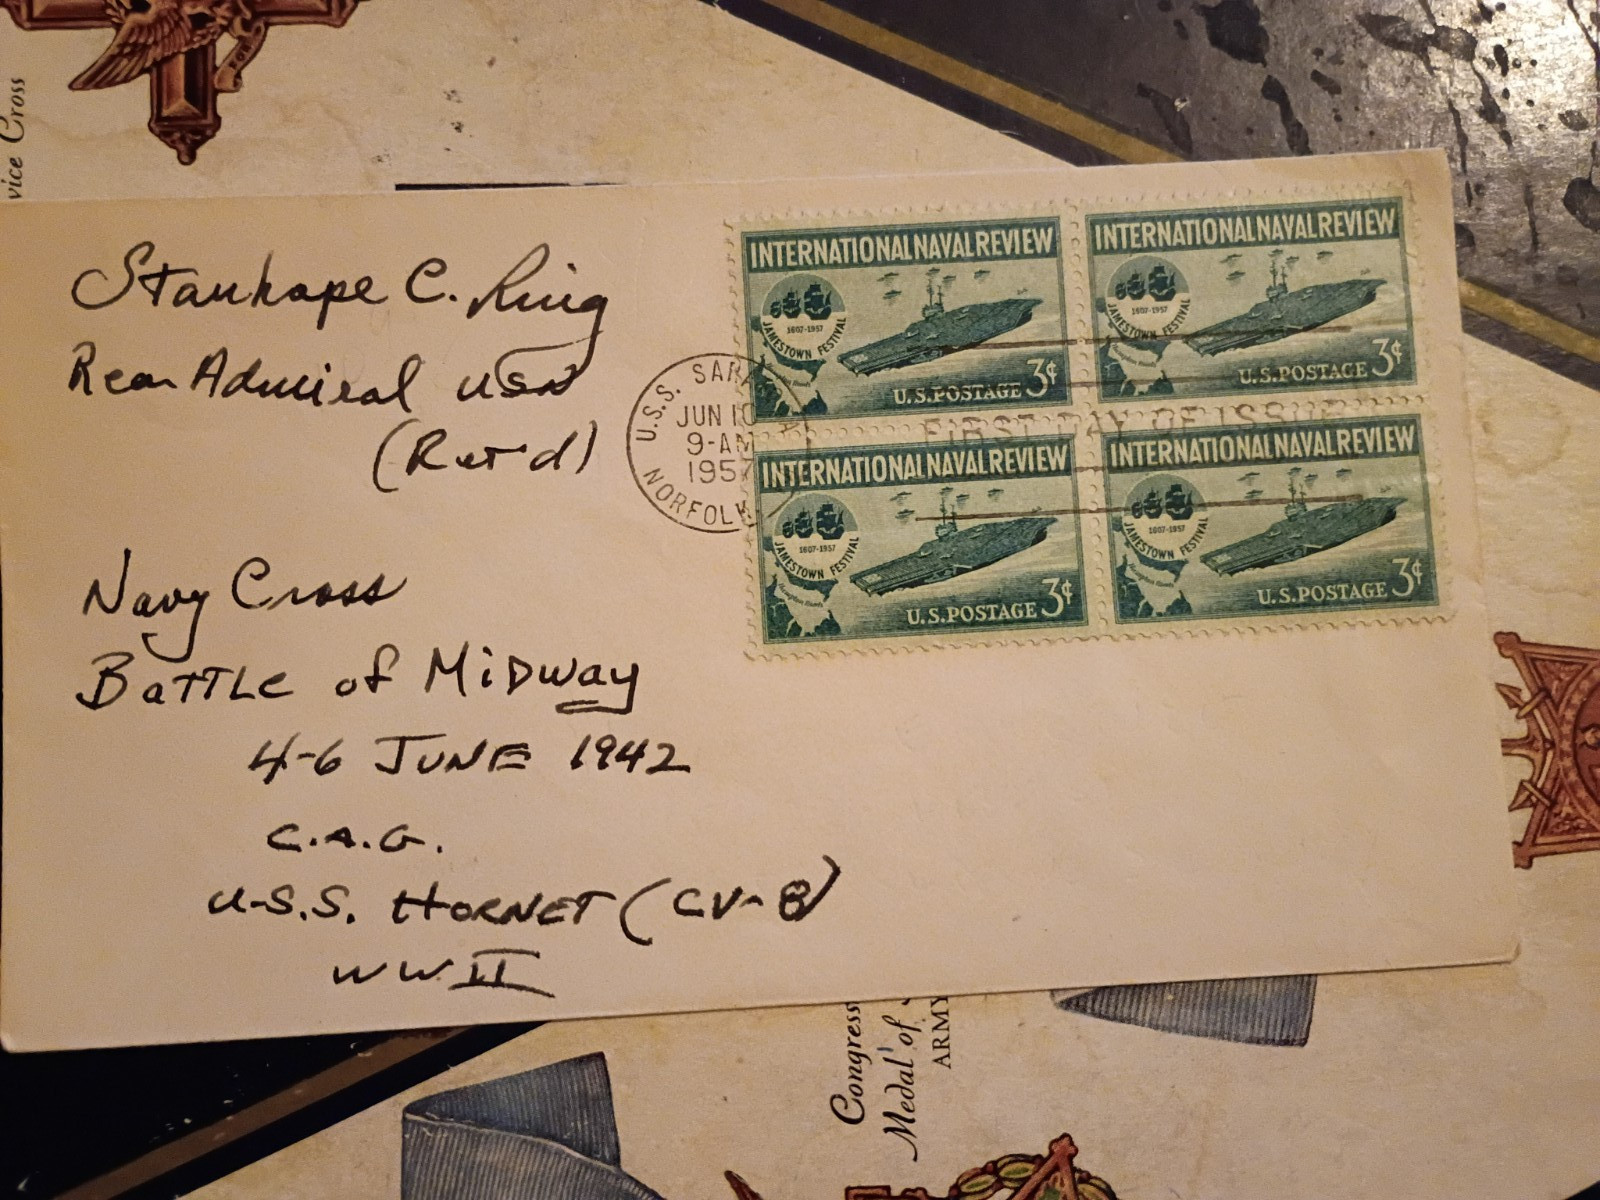 vice Cross
Stanhope C. Ring
Rear Admiral USN
(Ret'd)
Navy Cross
BATTLE of MIDway
4-6 JUNE 1942
C.A.G.
U.S.S. HORNET (CV-8)
WW II
U.S.S. SARA
JUN 10
9-AM
1957
NORFOLK
FIRST DAY OF ISSUE
INTERNATIONAL NAVAL REVIEW
1607-1957
JAMESTOWN FESTIVAL
U.S. POSTAGE 3¢
INTERNATIONAL NAVAL REVIEW
1607-1957
JAMESTOWN FESTIVAL
U.S. POSTAGE 3¢
INTERNATIONAL NAVAL REVIEW
1607-1957
JAMESTOWN FESTIVAL
U.S. POSTAGE 3¢
INTERNATIONAL NAVAL REVIEW
1607-1957
JAMESTOWN FESTIVAL
U.S. POSTAGE 3¢
Congress
Medal of
ARMY